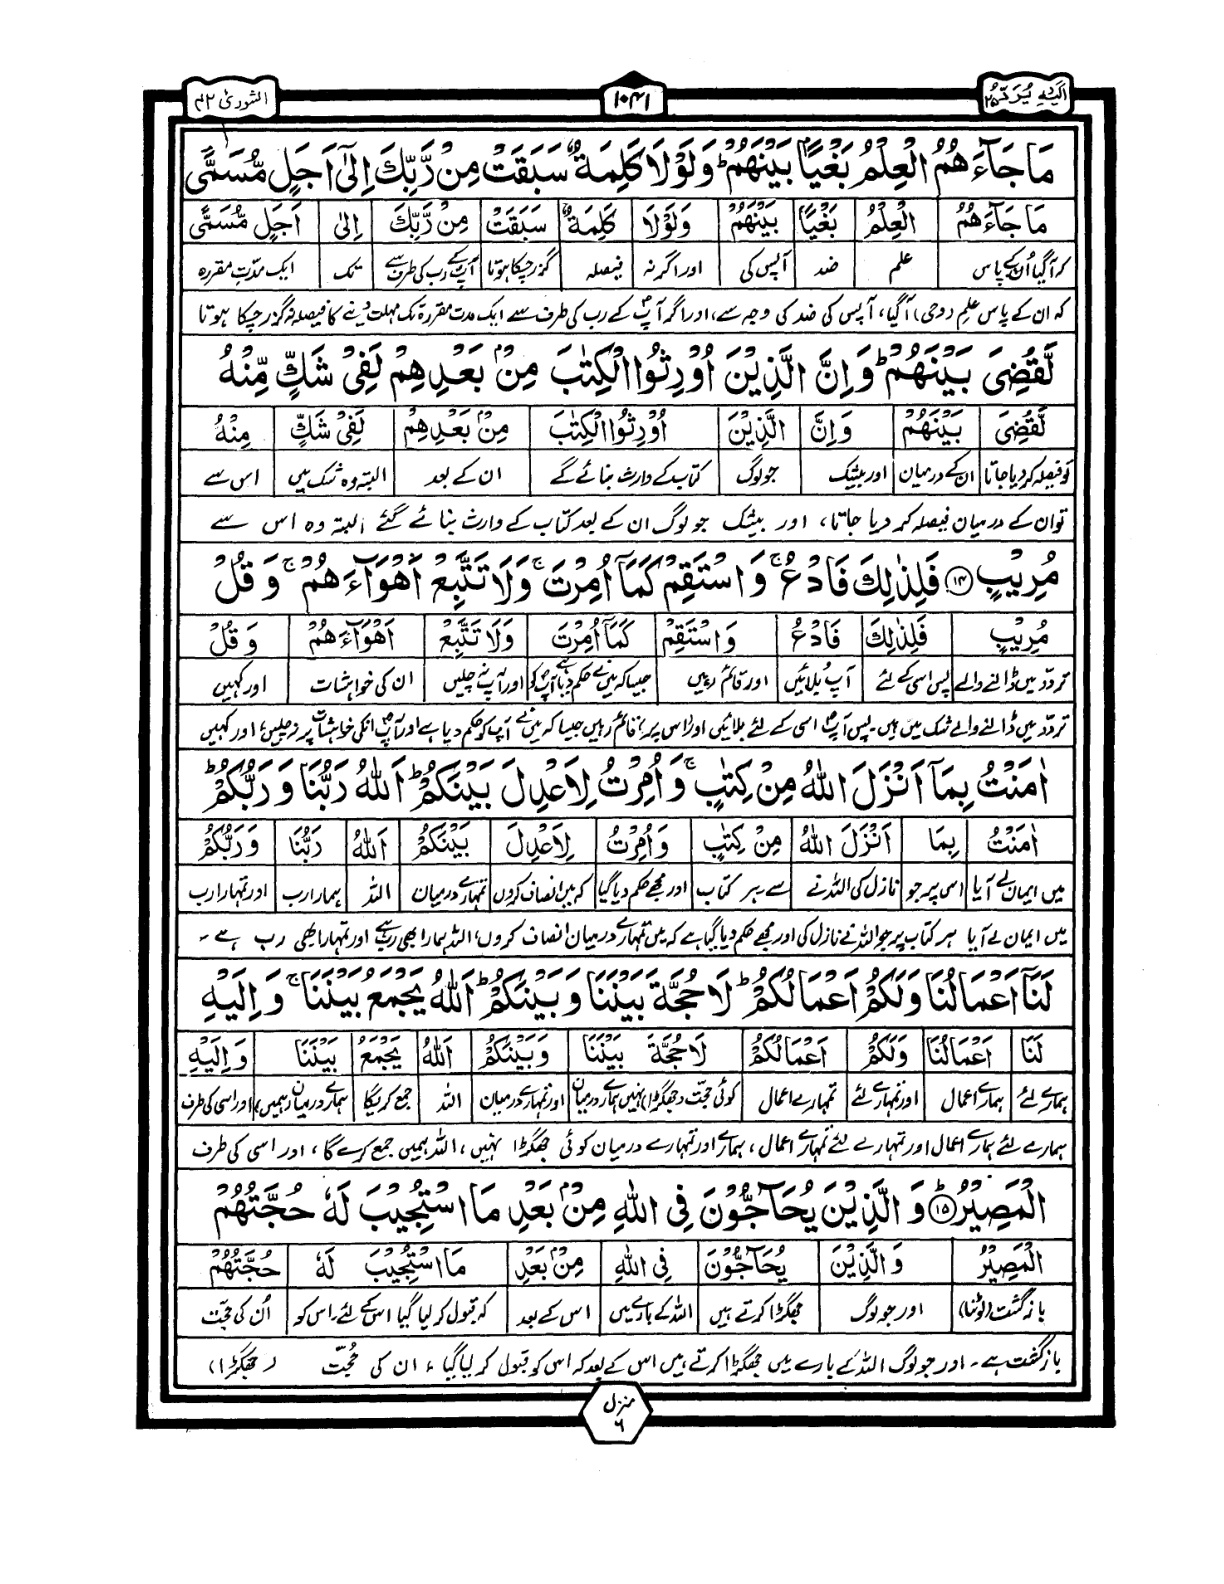 الشوریٰ ۴۲
۱۰۴۱
الیہ یرد ۲۵
مَا جَآءَهُمُ الْعِلْمُ بَغْيًۢا بَيْنَهُمْ ؕ وَلَوْلَا كَلِمَةٌ سَبَقَتْ مِنْ رَّبِّكَ اِلٰٓى اَجَلٍ مُّسَمًّى
مَا جَآءَهُمُ الْعِلْمُ بَغْيًۢا بَيْنَهُمْ وَلَوْلَا كَلِمَةٌ سَبَقَتْ مِنْ رَّبِّكَ اِلٰى اَجَلٍ مُّسَمًّى
کہ آگیا اُن کے پاس علم ضد آپس کی اور اگر نہ فیصلہ گزر چکا ہوتا آپؐ کے رب کی طرف سے تک ایک مدّتِ مقررہ
کہ ان کے پاس علم (وحی) آگیا، آپس کی ضد کی وجہ سے، اور اگر آپؐ کے رب کی طرف سے ایک مدت مقررہ تک مہلت دینے کا فیصلہ نہ گزر چکا ہوتا
لَّقُضِيَ بَيْنَهُمْ ؕ وَاِنَّ الَّذِيْنَ اُوْرِثُوا الْكِتٰبَ مِنْۢ بَعْدِهِمْ لَفِيْ شَكٍّ مِّنْهُ
لَّقُضِيَ بَيْنَهُمْ وَاِنَّ الَّذِيْنَ اُوْرِثُوا الْكِتٰبَ مِنْۢ بَعْدِهِمْ لَفِيْ شَكٍّ مِنْهُ
تو فیصلہ کر دیا جاتا ان کے درمیان اور بیشک جو لوگ کتاب کے وارث بنائے گئے ان کے بعد البتہ وہ شک میں اس سے
تو ان کے درمیان فیصلہ کر دیا جاتا، اور بیشک جو لوگ ان کے بعد کتاب کے وارث بنائے گئے البتہ وہ اس سے
مُرِيْبٍ ۱۴ فَلِذٰلِكَ فَادْعُ ۚ وَاسْتَقِمْ كَمَآ اُمِرْتَ ۚ وَلَا تَتَّبِعْ اَهْوَآءَهُمْ ۚ وَقُلْ
مُرِيْبٍ فَلِذٰلِكَ فَادْعُ وَاسْتَقِمْ كَمَآ اُمِرْتَ وَلَا تَتَّبِعْ اَهْوَآءَهُمْ وَقُلْ
تردّد میں ڈالنے والے پس اسی کے لئے آپ بلائیں اور قائم رہیں جیسا کہ میں نے حکم دیا آپؐ کو اور آپؐ نہ چلیں ان کی خواہشات اور کہیں
تردّد میں ڈالنے والے شک میں ہیں پس آپؐ اسی کے لئے بلائیں اور اس پر قائم رہیں جیسا کہ میں نے آپ کو حکم دیا ہے اور آپؐ انکی خواہشات پر نہ چلیں، اور کہیں
اٰمَنْتُ بِمَآ اَنْزَلَ اللّٰهُ مِنْ كِتٰبٍ ۚ وَاُمِرْتُ لِاَعْدِلَ بَيْنَكُمْ ؕ اَللّٰهُ رَبُّنَا وَرَبُّكُمْ ؕ
اٰمَنْتُ بِمَا اَنْزَلَ اللّٰهُ مِنْ كِتٰبٍ وَاُمِرْتُ لِاَعْدِلَ بَيْنَكُمْ اَللّٰهُ رَبُّنَا وَرَبُّكُمْ
میں ایمان لے آیا اس پر جو نازل کی اللہ نے سے ہر کتاب اور مجھے حکم دیا گیا کہ میں انصاف کروں تمہارے درمیان اللہ ہمارا رب اور تمہارا رب
میں ایمان لے آیا ہر کتاب پر جو اللہ نے نازل کی اور مجھے حکم دیا گیا ہے کہ میں تمہارے درمیان انصاف کروں، اللہ ہمارا بھی رب ہے اور تمہارا بھی رب ہے۔
لَنَآ اَعْمَالُنَا وَلَكُمْ اَعْمَالُكُمْ ؕ لَا حُجَّةَ بَيْنَنَا وَبَيْنَكُمْ ؕ اَللّٰهُ يَجْمَعُ بَيْنَنَا ۚ وَاِلَيْهِ
لَنَآ اَعْمَالُنَا وَلَكُمْ اَعْمَالُكُمْ لَا حُجَّةَ بَيْنَنَا وَبَيْنَكُمْ اَللّٰهُ يَجْمَعُ بَيْنَنَا وَاِلَيْهِ
ہمارے لئے ہمارے اعمال اور تمہارے لئے تمہارے اعمال کوئی حجت (جھگڑا) نہیں ہمارے درمیان اور تمہارے درمیان اللہ جمع کریگا ہمارے درمیان (ہمیں) اور اسی کی طرف
ہمارے لئے ہمارے اعمال اور تمہارے لئے تمہارے اعمال، ہمارے اور تمہارے درمیان کوئی جھگڑا نہیں، اللہ ہمیں جمع کرے گا، اور اسی کی طرف
الْمَصِيْرُ ۱۵ وَالَّذِيْنَ يُحَآجُّوْنَ فِي اللّٰهِ مِنْۢ بَعْدِ مَا اسْتُجِيْبَ لَهٗ حُجَّتُهُمْ
الْمَصِيْرُ وَالَّذِيْنَ يُحَآجُّوْنَ فِي اللّٰهِ مِنْۢ بَعْدِ مَا اسْتُجِيْبَ لَهٗ حُجَّتُهُمْ
بازگشت (لوٹنا) اور جو لوگ جھگڑا کرتے ہیں اللہ کے بارے میں اس کے بعد کہ قبول کر لیا گیا اس کے لئے اس کو اُن کی حجت
بازگشت ہے۔ اور جو لوگ اللہ کے بارے میں جھگڑا کرتے ہیں اس کے بعد کہ اس کو قبول کر لیا گیا، ان کی حُجّت (جھگڑا)
منزل
۶